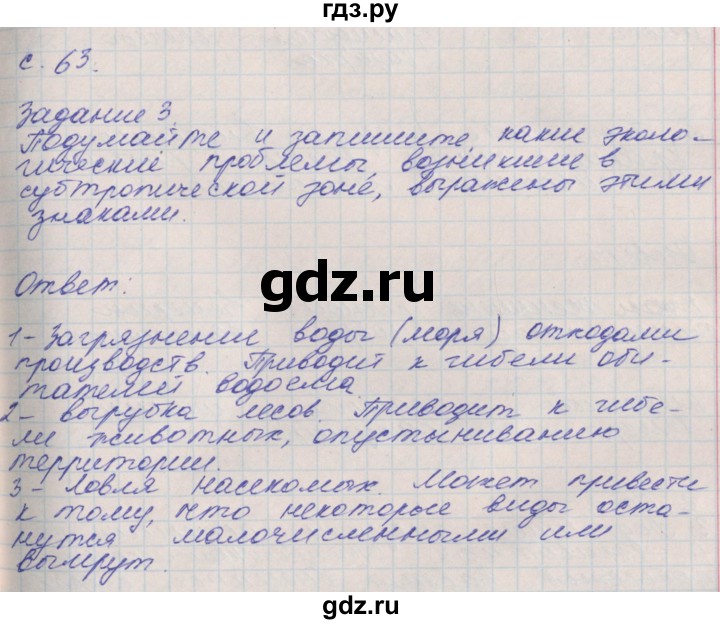 гдз.ру
с. 63.
Задание 3.
Подумайте и запишите, какие эколо-
гические проблемы, возникшие в
субтропической зоне, выражены этими
знаками.
gdz.ru
Ответ:
1- Загрязнение воды (моря) отходами
производств. Приводит к гибели оби-
тателей водоема.
2- вырубка лесов. Приводит к гибе-
ли животных, опустыниванию
территории.
3- Ловля насекомых. Может привести
к тому, что некоторые виды оста-
нутся малочисленными или
вымрут.
gdz.ru